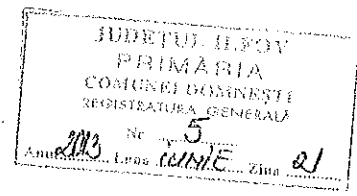 JUDEŢUL ILFOV
PRIMĂRIA
COMUNEI DOMNEŞTI
REGISTRATURA GENERALĂ
Nr. 5
Anul 2013 Luna IUNIE Ziua 21